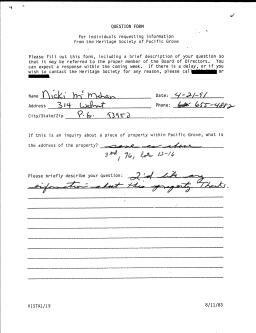 QUESTION FORM
For individuals requesting information
from the Heritage Society of Pacific Grove
Please fill out this form, including a brief description of your question so
that it may be referred to the proper member of the Board of Directors. You
can expect a response within the coming week. If there is a delay, or if you
wish to contact the Heritage Society for any reason, please call or
Name Nicki McMahan Date: 4-21-91
Address 314 Walnut Phone: 655-4882
City/State/Zip P.G. 93950
If this is an inquiry about a piece of property within Pacific Grove, what is
the address of the property? same as above
3rd, 76, lot 13-16
Please briefly describe your question: I'd like any
information about this property. Thanks.
HISTA1/19 8/11/83